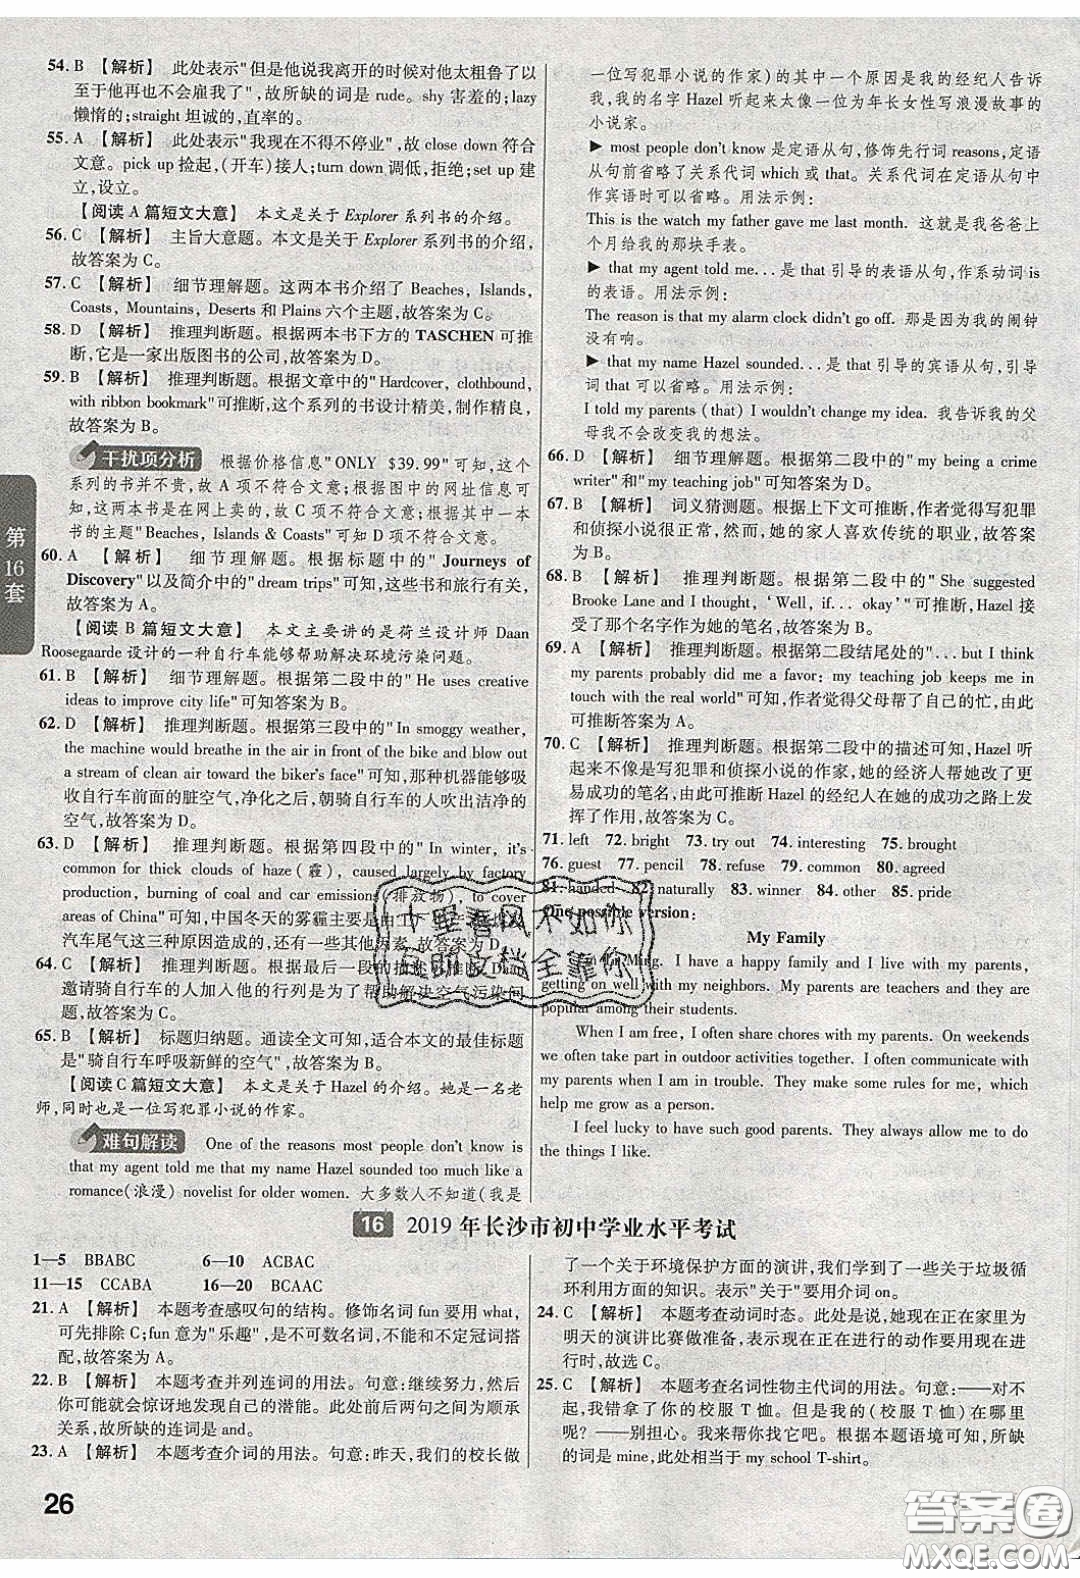 54. B 【解析】 此处表示"但是他说我离开的时候对他太粗鲁了以
至于他再也不会雇我了",故所缺的词是 rude。shy 害羞的;lazy
懒惰的;straight 坦诚的,直率的。
55. A 【解析】 此处表示"我现在不得不停业",故 close down 符合
文意。pick up 捡起,(开车)接人;turn down 调低,拒绝;set up 建
立,设立。
【阅读 A 篇短文大意】 本文是关于 Explorer 系列书的介绍。
56. C 【解析】 主旨大意题。本文是关于 Explorer 系列书的介绍,
故答案为 C。
57. C 【解析】 细节理解题。这两本书介绍了 Beaches, Islands,
Coasts, Mountains, Deserts 和 Plains 六个主题,故答案为 C。
58. D 【解析】 推理判断题。根据两本书下方的 TASCHEN 可推
断,它是一家出版图书的公司,故答案为 D。
59. B 【解析】 推理判断题。根据文章中的"Hardcover, clothbound,
with ribbon bookmark"可推断,这个系列的书设计精美,制作精良,
故答案为 B。
干扰项分析 根据价格信息"ONLY $39.99"可知,这个
系列的书并不贵,故 A 项不符合文意;根据图中的网址信息可
知,这两本书是在网上卖的,故 C 项不符合文意;根据其中一本
书的主题"Beaches, Islands & Coasts"可知 D 项不符合文意。
60. A 【解析】 细节理解题。根据标题中的"Journeys of
Discovery"以及简介中的"dream trips"可知,这些书和旅行有关,
故答案为 A。
【阅读 B 篇短文大意】 本文主要讲的是荷兰设计师 Daan
Roosegaarde 设计的一种自行车能够帮助解决环境污染问题。
61. B 【解析】 细节理解题。根据第二段中的"He uses creative
ideas to improve city life"可知答案为 B。
62. D 【解析】 推理判断题。根据第三段中的"In smoggy weather,
the machine would breathe in the air in front of the bike and blow out
a stream of clean air toward the biker's face"可知,那种机器能够吸
收自行车前面的脏空气,净化之后,朝骑自行车的人吹出洁净的
空气,故答案为 D。
63. D 【解析】 推理判断题。根据第四段中的"In winter, it's
common for thick clouds of haze(霾), caused largely by factory
production, burning of coal and car emissions(排放物), to cover
areas of China"可知,中国冬天的雾霾主要是由工厂
汽车尾气这三种原因造成的,还有一些其他因素,故答案为 D。
64. C 【解析】 推理判断题。根据最后一段的描述可推断
邀请骑自行车的人加入他的行列是为了帮助解决空气污染问
题,故答案为 C。
65. B 【解析】 标题归纳题。通读全文可知,适合本文的最佳标题
是"骑自行车呼吸新鲜的空气",故答案为 B。
【阅读 C 篇短文大意】 本文是关于 Hazel 的介绍。她是一名老
师,同时也是一位写犯罪小说的作家。
难句解读 One of the reasons most people don't know is
that my agent told me that my name Hazel sounded too much like a
romance(浪漫) novelist for older women. 大多数人不知道(我是
一位写犯罪小说的作家)的其中一个原因是我的经纪人告诉
我,我的名字 Hazel 听起来太像一位为年长女性写浪漫故事的
小说家。
▶ most people don't know 是定语从句,修饰先行词 reasons,定语
从句前省略了关系代词 which 或 that。关系代词在定语从句中
作宾语时可以省略。用法示例:
This is the watch my father gave me last month. 这是我爸爸上
个月给我的那块手表。
▶ that my agent told me...是 that 引导的表语从句,作系动词 is
的表语。用法示例:
The reason is that my alarm clock didn't go off. 那是因为我的闹钟
没有响。
▶ that my name Hazel sounded...是 that 引导的宾语从句,引导
词 that 可以省略。用法示例:
I told my parents (that) I wouldn't change my idea. 我告诉我的父
母我不会改变我的想法。
66. D 【解析】 细节理解题。根据第二段中的"my being a crime
writer"和"my teaching job"可知答案为 D。
67. B 【解析】 词义猜测题。根据上下文可推断,作者觉得写犯罪
和侦探小说很正常,然而,她的家人喜欢传统的职业,故答案
为 B。
68. B 【解析】 推理判断题。根据第二段中的"She suggested
Brooke Lane and I thought, 'Well, if... okay'"可推断,Hazel 接
受了那个名字作为她的笔名,故答案为 B。
69. A 【解析】 推理判断题。根据第二段结尾处的"...but I think
my parents probably did me a favor: my teaching job keeps me in
touch with the real world"可知,作者觉得父母帮了自己的忙,由
可推断答案为 A。
70. C 【解析】 推理判断题。根据第二段中的描述可知,Hazel 听
起来不像是写犯罪和侦探小说的作家,她的经济人帮她改了更
易成功的名字。由此可推断 Hazel 的经纪人在她的成功之路上发
挥了作用,故答案为 C。
71. left 72. bright 73. try out 74. interesting 75. brought
76. guest 77. pencil 78. refuse 79. common 80. agreed
81. handed 82. naturally 83. winner 84. other 85. pride
One possible version:
My Family
Ming. I have a happy family and I live with my parents,
getting on well with my neighbors. My parents are teachers and they are
popular among their students.
When I am free, I often share chores with my parents. On weekends
we often take part in outdoor activities together. I often communicate with
my parents when I am in trouble. They also make some rules for me, which
help me grow as a person.
I feel lucky to have such good parents. They always allow me to do
the things I like.
16 2019 年长沙市初中学业水平考试
1—5 BBABC 6—10 ACBAC
11—15 CCABA 16—20 BCAAC
21. A 【解析】 本题考查感叹句的结构。修饰名词 fun 要用 what,
可先排除 C;fun 意为"乐趣",是不可数名词,不能和不定冠词搭
配,故答案为 A。
22. B 【解析】 本题考查并列连词的用法。句意:继续努力,然后
你可能就会惊讶地发现自己的潜能。此处前后两句之间为顺承
关系,故所缺的连词是 and。
23. A 【解析】 本题考查介词的用法。句意:昨天,我们的校长做
了一个关于环境保护方面的演讲,我们学到了一些关于垃圾循
环利用方面的知识。表示"关于"要用介词 on。
24. C 【解析】 本题考查动词时态。此处是说,她现在正在家里为
明天的演讲比赛做准备,表示现在正在进行的动作要用现在进
行时,故选 C。
25. C 【解析】 本题考查名词性物主代词的用法。句意:——对不
起,我错拿了你的校服 T 恤。但是我的(校服 T 恤)在哪里
呢? ——别担心。我帮你找找它吧。根据本题语境可知,所缺
的词是 mine,此处相当于 my school T-shirt。
第16套
26
十里春风不如你
互助文档全靠你
答案圈
MXQE.COM